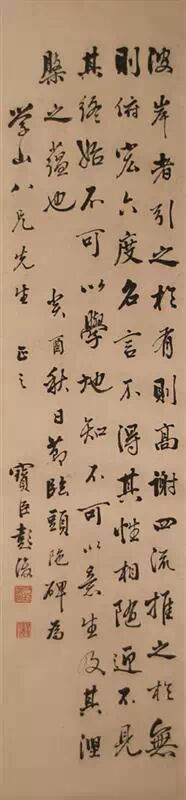 彼岸者引之於有則高謝四流推之於無
則俯宏六度名言不得其性相隨迎不見
其終始不可以學地知不可以意生及其涅
槃之蘊也 癸酉秋日節臨頭陀碑為
學山八兄先生 正之 寶臣彭浚